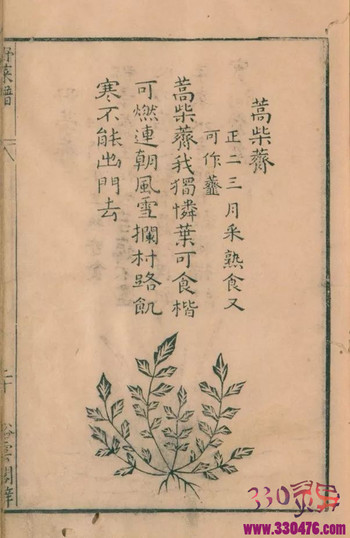 蒿柴薺
正二三月采熟食又
可作虀
蒿柴薺我獨憐葉可食楷
可燃連朝風雪攔村路飢
寒不能出門去
野菜譜
330
www.330476.com